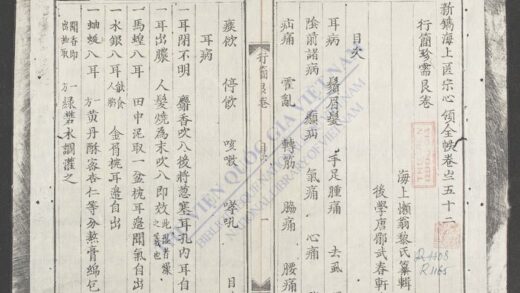 新鐫海上医宗心領全帙卷之五十二
行簡珍需艮卷
海上懶翁黎氏纂輯
後學唐郿武春軒
目次
耳病 鬚眉髮 手足腫痛 去虱
陰前諸病 癩病 氣痛 心痛
疝痛 霍亂 轉筋 腸痛 腰痛
行簡艮卷 目次
痰飲 停飲 咳嗽 哮吼 目
耳病
一耳閉不明 麝香吹入後將葱塞耳孔内耳自
一耳出膿 人髮燒為末吹入即效
一馬蝗入耳 田中泥取一盆枕耳邊聞氣自出
一水銀入耳 能食人腦 金枕耳邊自出
一蚰蜒入耳 一方 黄丹酥蜜杏仁等分熬膏綿包
聞香即出抽取 一方 緑礬水調灌之
THƯ VIỆN QUỐC GIA VIỆT NAM
NATIONAL LIBRARY OF VIETNAM
R.1165